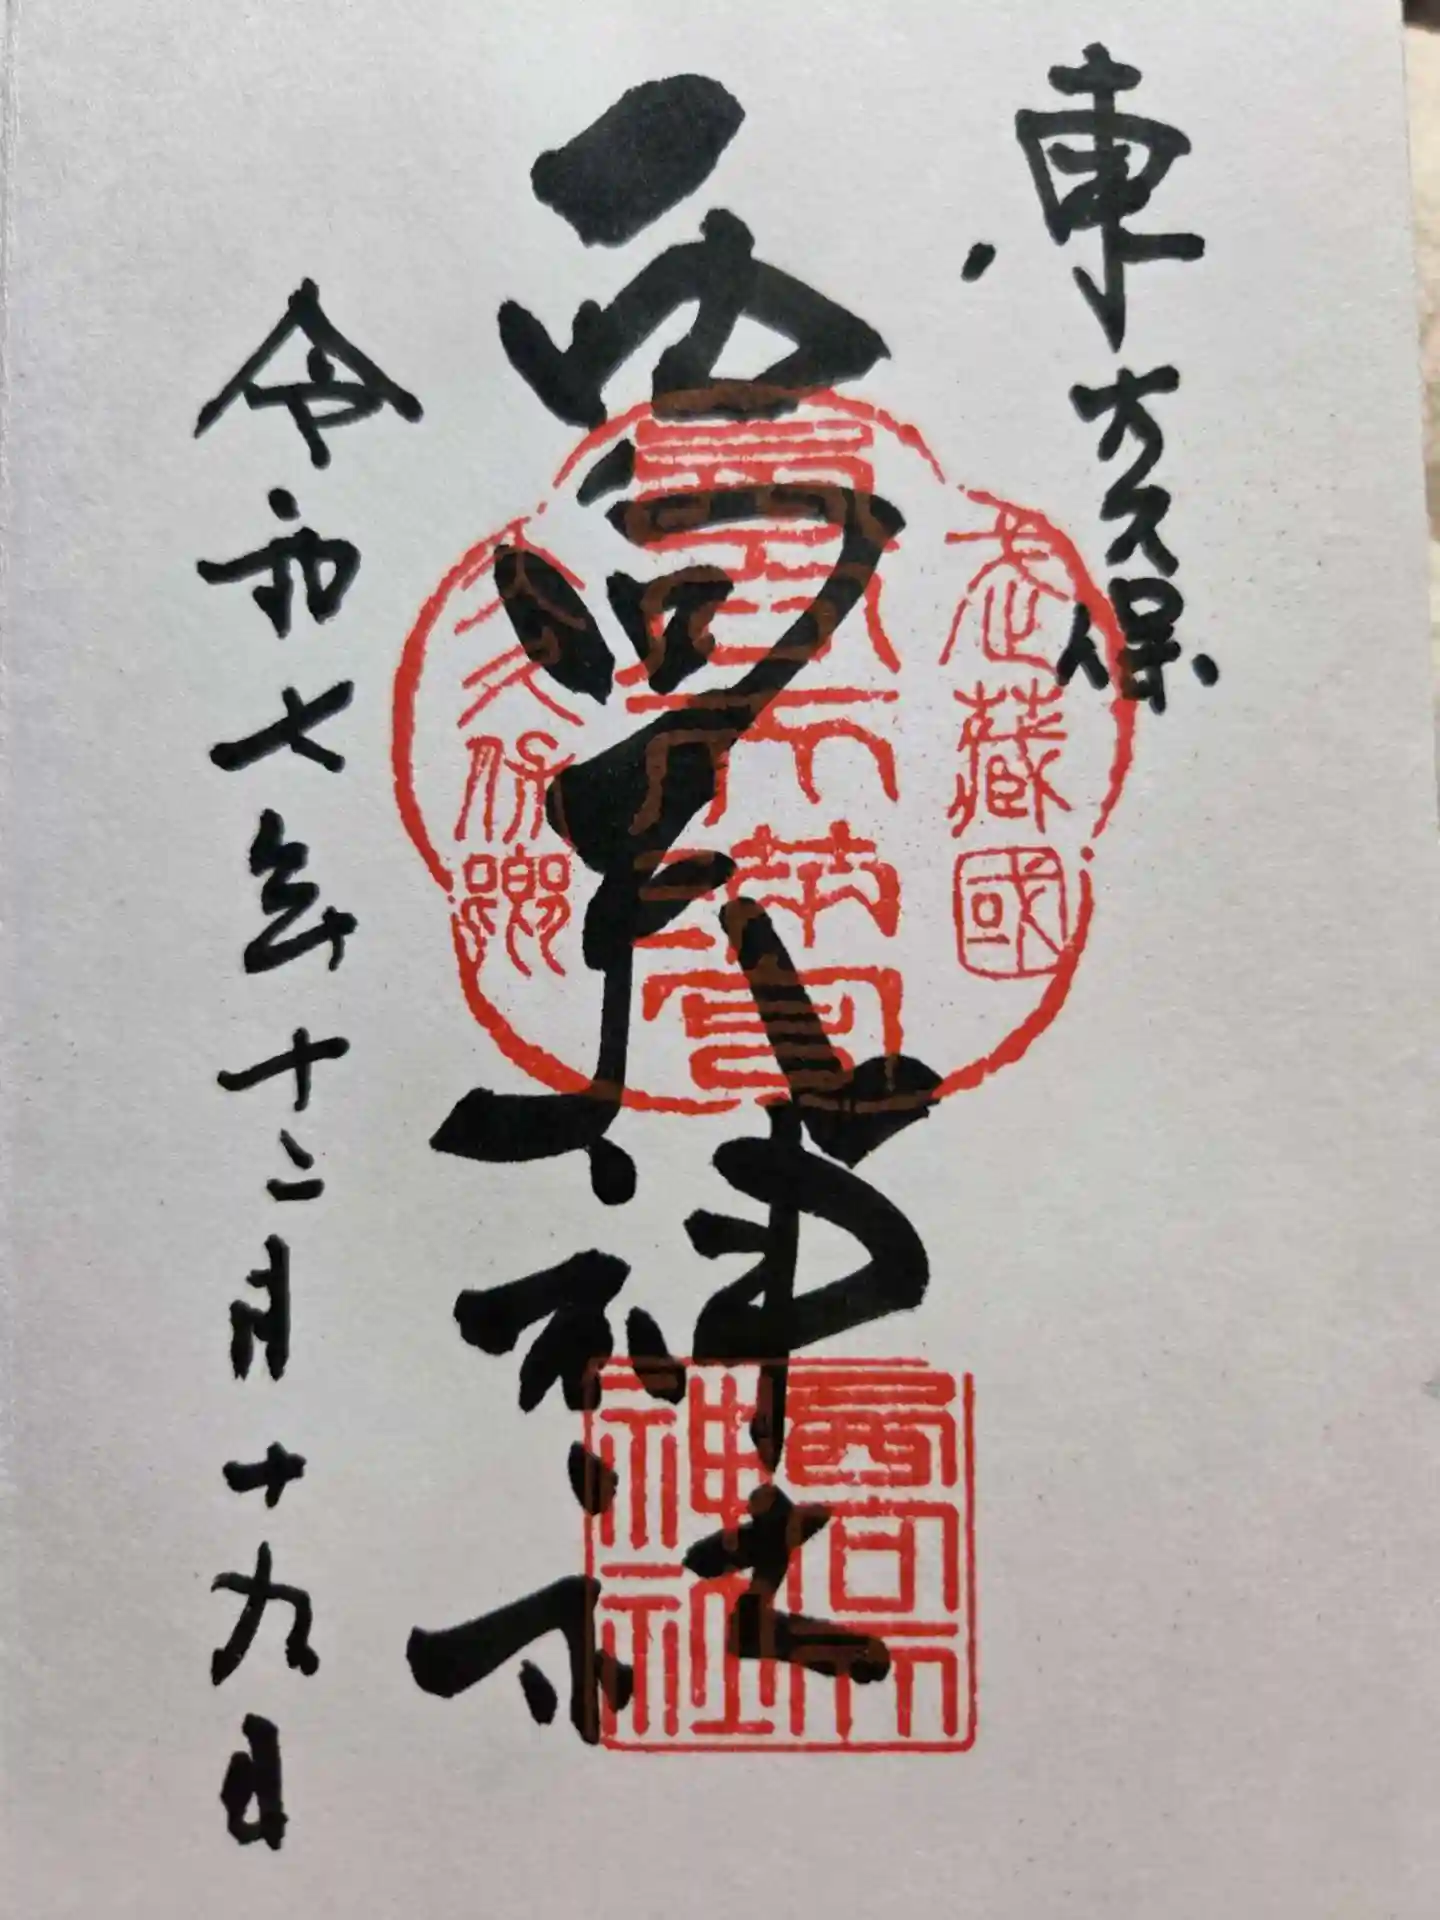 東大久保
西向天神社
令和七年十二月十九日
武藏國
大久保鄕
西向天
神社